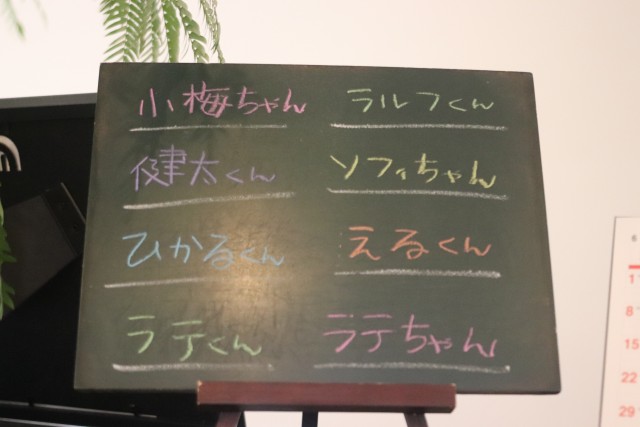 小梅ちゃん
ラルフくん
健太くん
ソフィちゃん
ひかるくん
えるくん
ラテくん
ラテちゃん
6
1
8
15
22
29